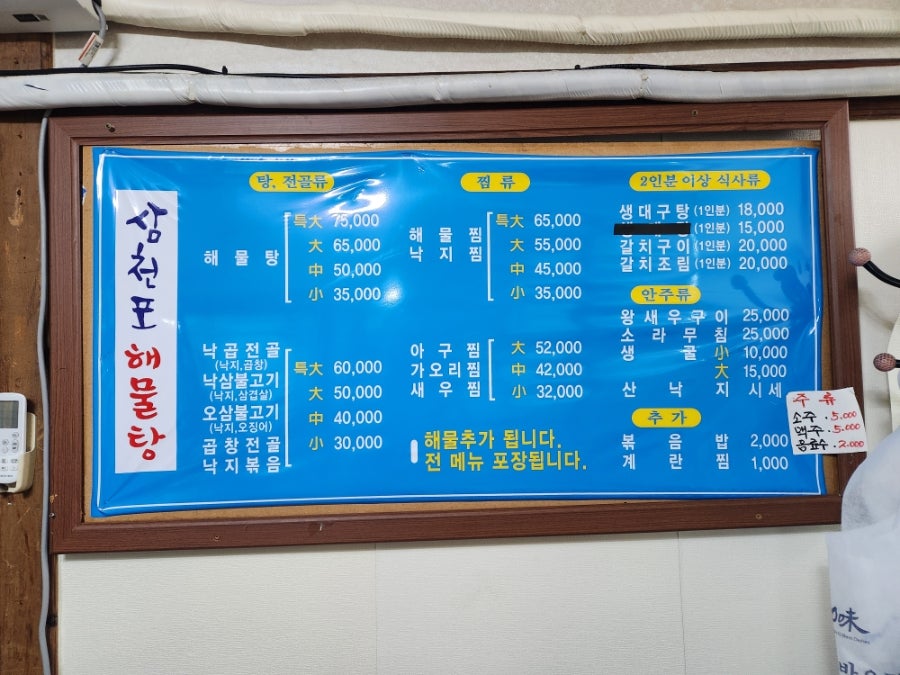 삼천포 해물탕
탕, 전골류
해물탕
특大 75,000
大 65,000
中 50,000
小 35,000
낙곱전골
(낙지,곱창)
낙삼불고기
(낙지,삼겹살)
오삼불고기
(낙지,오징어)
곱창전골
낙지볶음
특大 60,000
大 50,000
中 40,000
小 30,000
찜류
해물찜
낙지찜
특大 65,000
大 55,000
中 45,000
小 35,000
아구찜
가오리찜
새우찜
大 52,000
中 42,000
小 32,000
해물추가 됩니다.
전 메뉴 포장됩니다.
2인분 이상 식사류
생대구탕 (1인분) 18,000
(1인분) 15,000
갈치구이 (1인분) 20,000
갈치조림 (1인분) 20,000
안주류
왕새우구이 25,000
소라무침 25,000
생굴 小 10,000
大 15,000
산낙지 시세
추가
볶음밥 2,000
계란찜 1,000
주류
소주 . 5.000
맥주 . 5.000
음료수 . 2.000
味